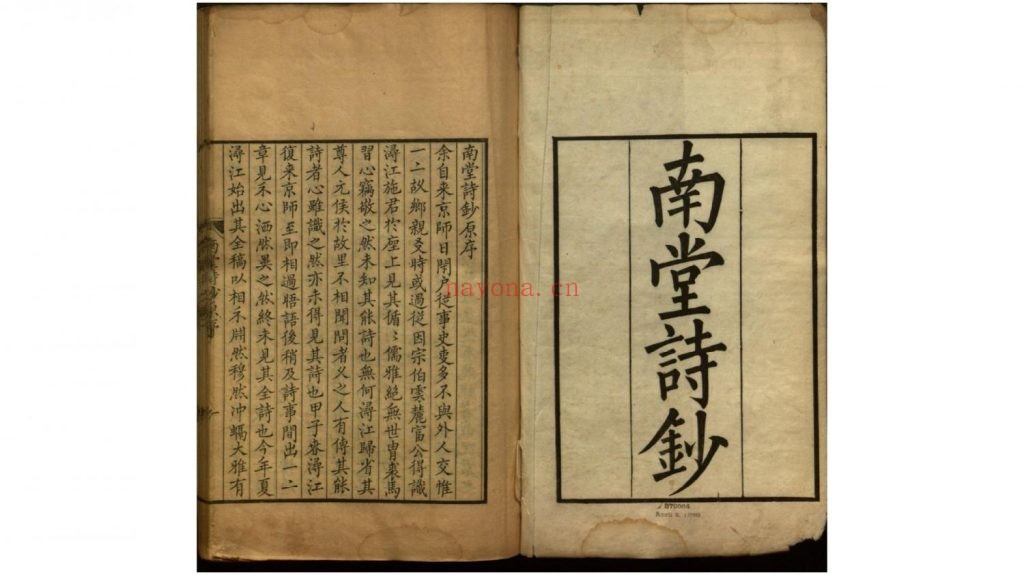 南堂詩鈔
南堂詩鈔原序
余自来京師日閉户従事史叓多不與外人交惟
一二故鄉親叐時或過從因宗伯雲麓富公得識
潯江施君於座上見其循〻儒雅絶無世胄裘馬
習心竊敬之然未知其能詩也無何潯江歸省其
尊人元侯於故里不相聞問者乂之人有傳其能
詩者心雖識之然亦未得見其詩也甲子春潯江
復来京師至即相過晤語後稍及詩事間出一二
章見示心洒然異之然終未見其全詩也今年夏
潯江始出其全稿以相示淵然穆然沖瀜大雅有
nayona.cn